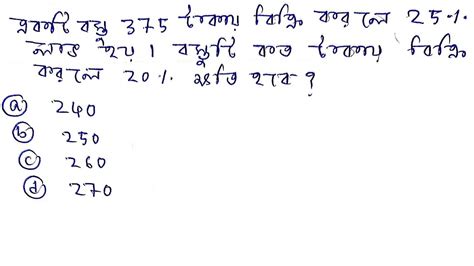 একটি বস্তু 375 টাকায় বিক্রি করলে 25%
লাভ হয়। বস্তুটি কত টাকায় বিক্রি
করলে 20% ক্ষতি হবে?
ⓐ 240
ⓑ 250
ⓒ 260
ⓓ 270